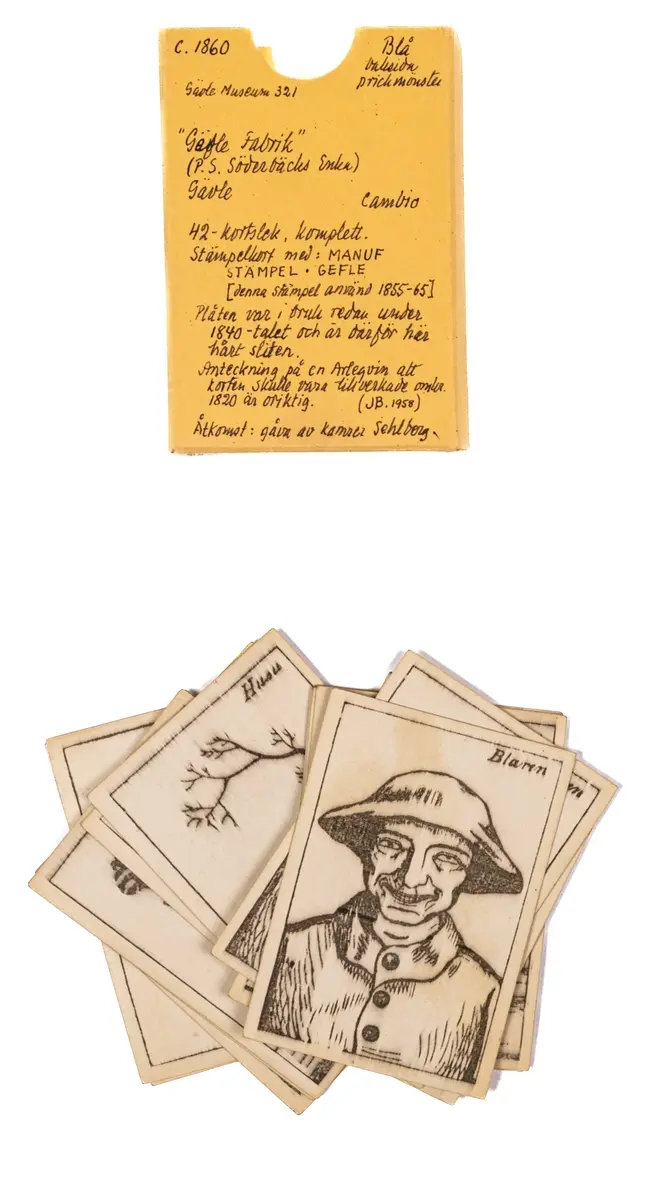 c. 1860
Blå
baksida
prickmönster
Gävle Museum 321
"Gefle Fabrik"
(P.S. Söderbäcks Enka)
Gävle
Cambio
42-kortslek, komplett.
Stämpelkort med: MANUF
STÄMPEL · GEFLE
[denna stämpel använd 1855-65]
Plåten var i bruk redan under
1840-talet och är därför här
hårt sliten.
Anteckning på en Arleqvin att
korten skulle vara tillverkade omkr.
1820 är oriktig. (JB. 1958)
Åtkomst: gåva av kamrer Sehlberg.
Husu
Blaren
en